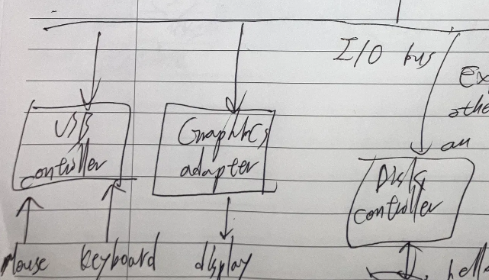 I/O bus
Ex
othe
an
USB
controller
Graphics
adapter
Disk
controller
Mouse
keyboard
display
hello